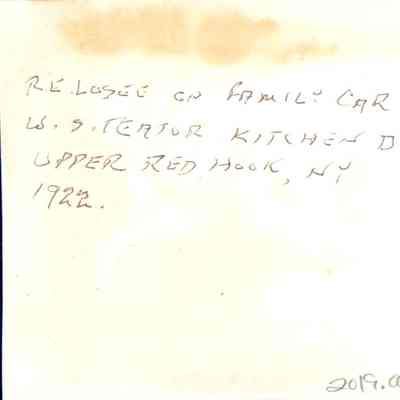 R.E. LOSEE ON FAMILY CAR
W. S. TEATOR KITCHEN D
UPPER RED HOOK, NY
1922.
2019.0